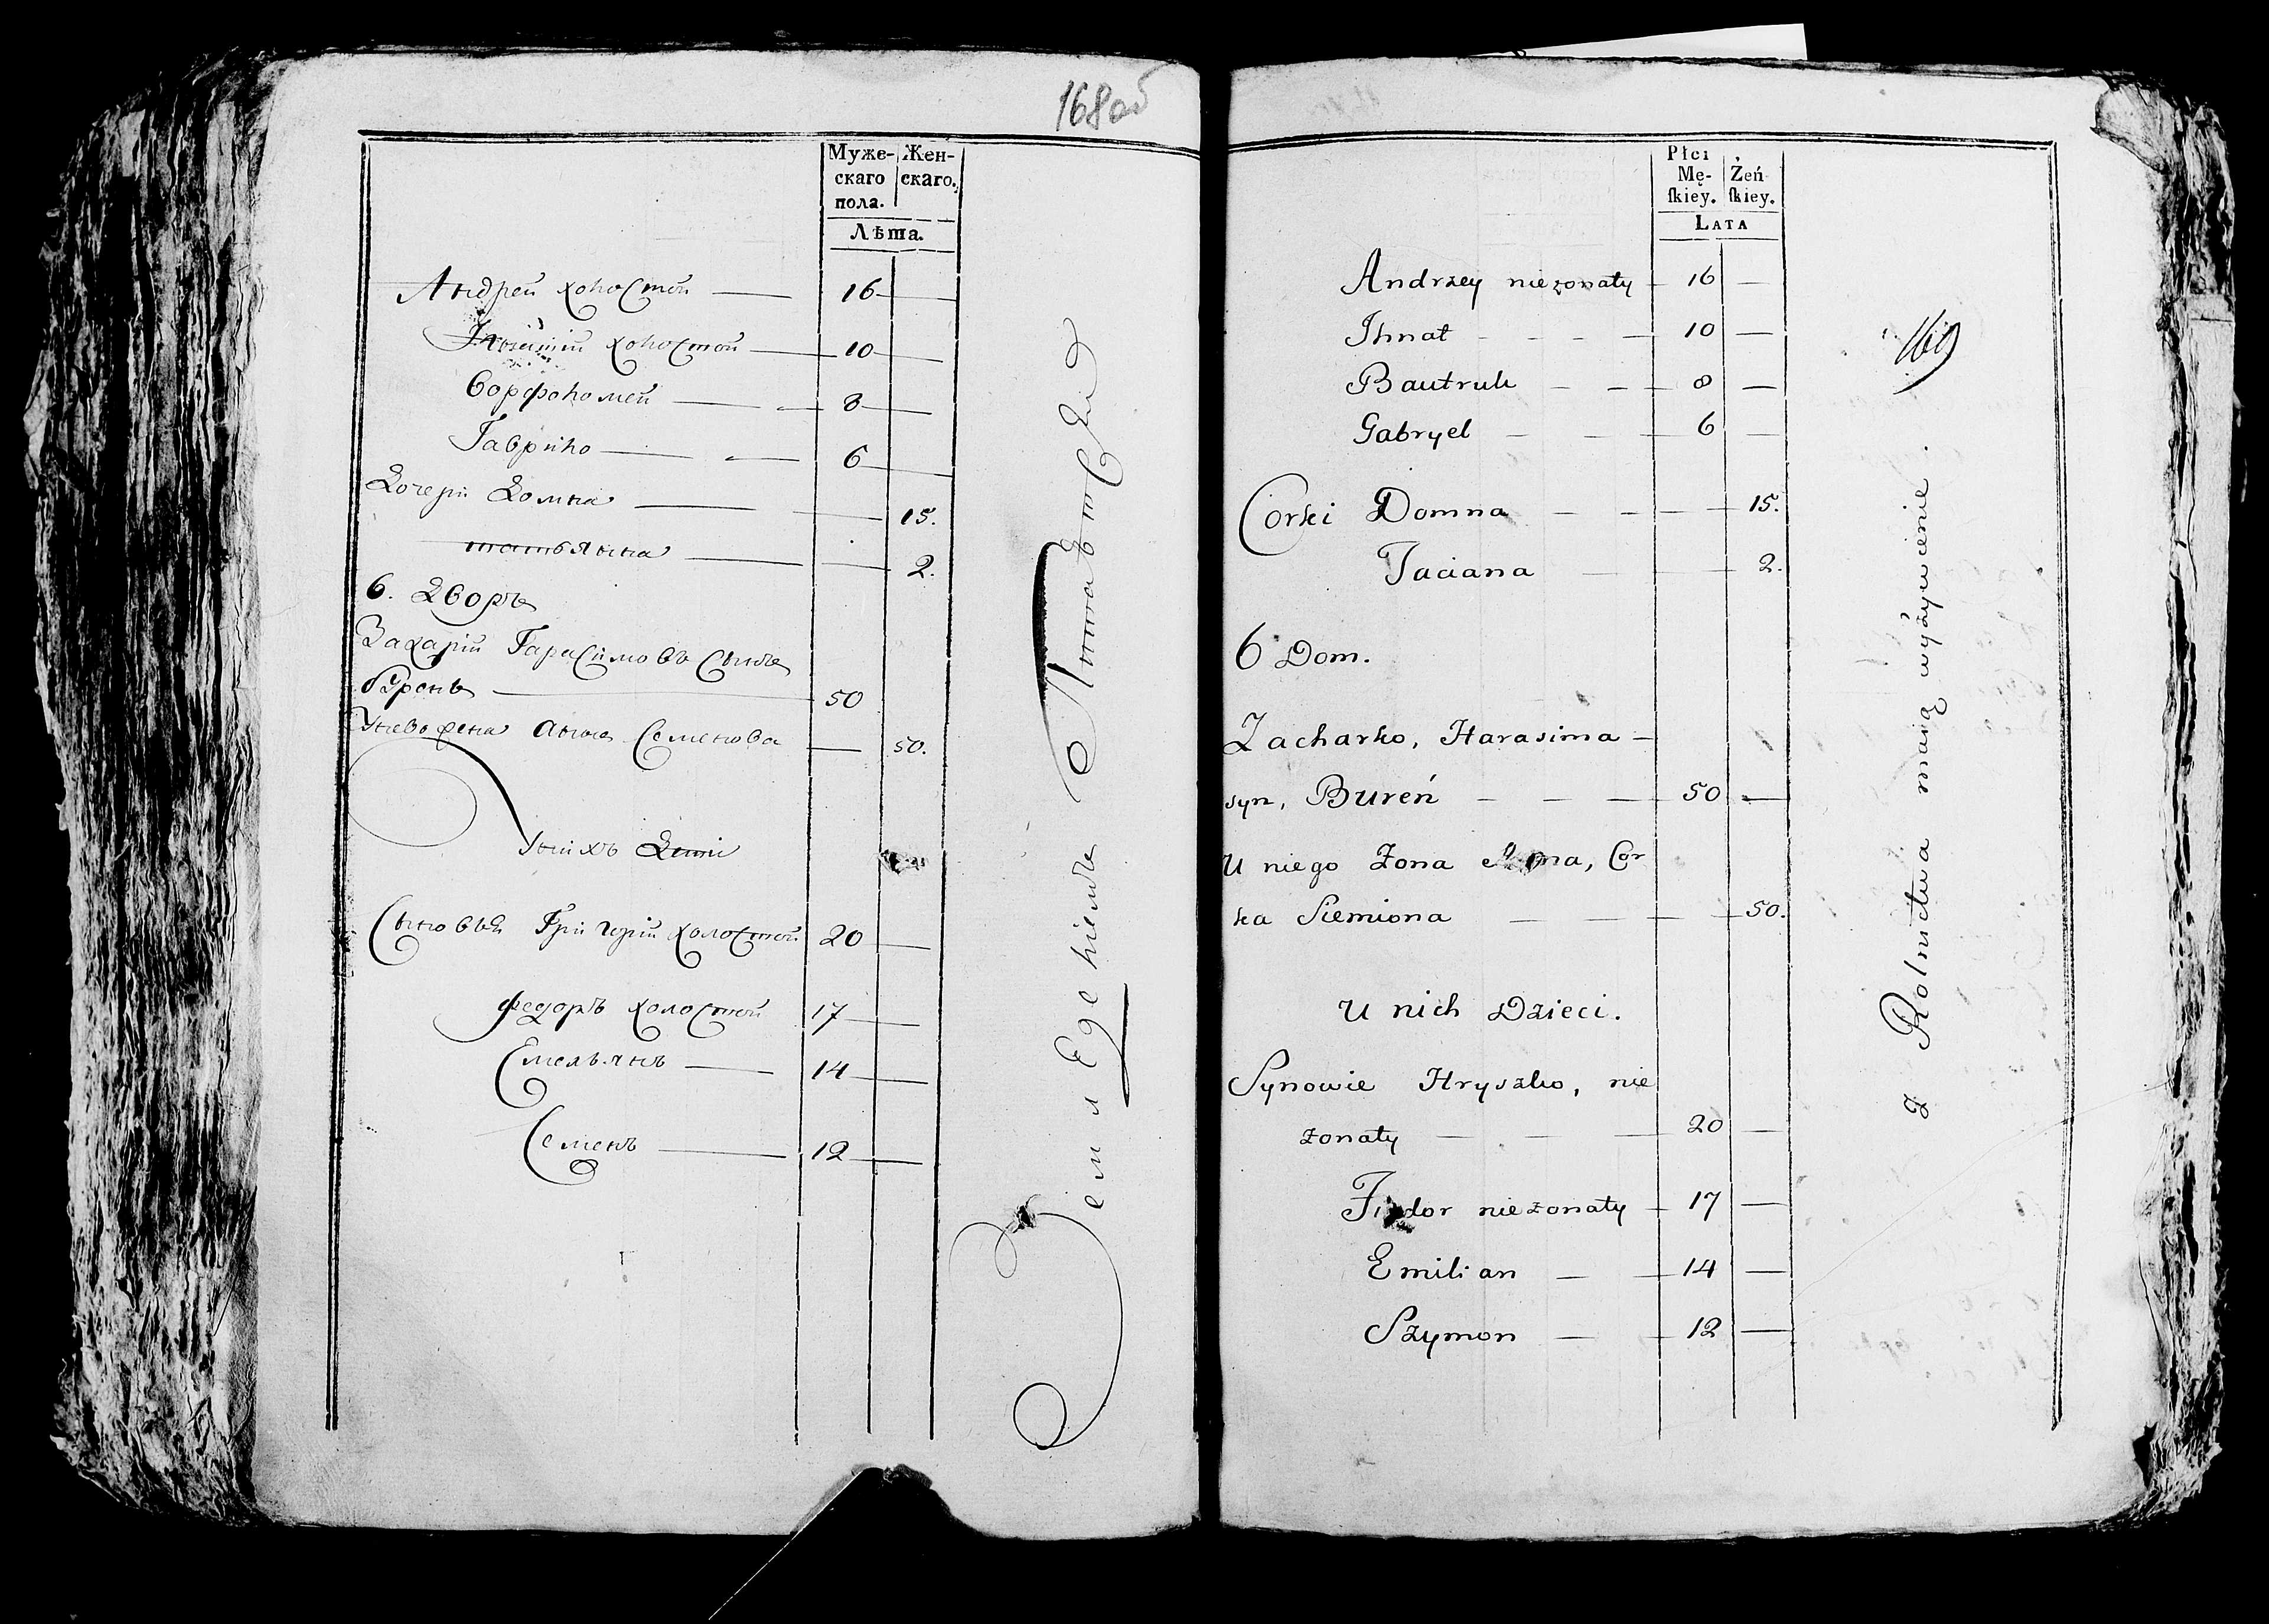 168об
Муже- Жен-
скаго скаго.
пола.
Лѣта.
Андрей холостой 16
Игнатiй холостой 10
Ворфоломей 8
Гаврило 6
Дочери Домна 15.
татьянна 2.
6. Дворъ
Захарiй Гарасимовъ сынъ
Бурень 50
Унево жена Анна Семенова 50.
Унихъ Дети
Сыновья Григорiй холостой 20
Федоръ холостой 17
Емельянъ 14
Семенъ 12
Питаются
Płci
Mę- Żeń
skiey. skiey.
LATA
Andrzey nieżonaty 16 —
Ihnat - - - — 10 —
Bautruk — — 8 —
Gabryel — — 6 —
Corki Domna — — — 15.
Taciana — — 2.
6 Dom.
Zacharko, Harasima —
syn, Bureń — — — 50 —
U niego Żona Anna, Cor
ka Siemiona — — — 50.
U nich Dzieci.
Synowie Hryszko, nie
żonaty — — — 20 —
Fiedor nieżonaty 17 —
Emilian — — 14 —
Szymon — 12 —
169
z Rolnictwa maią wyżywienie.